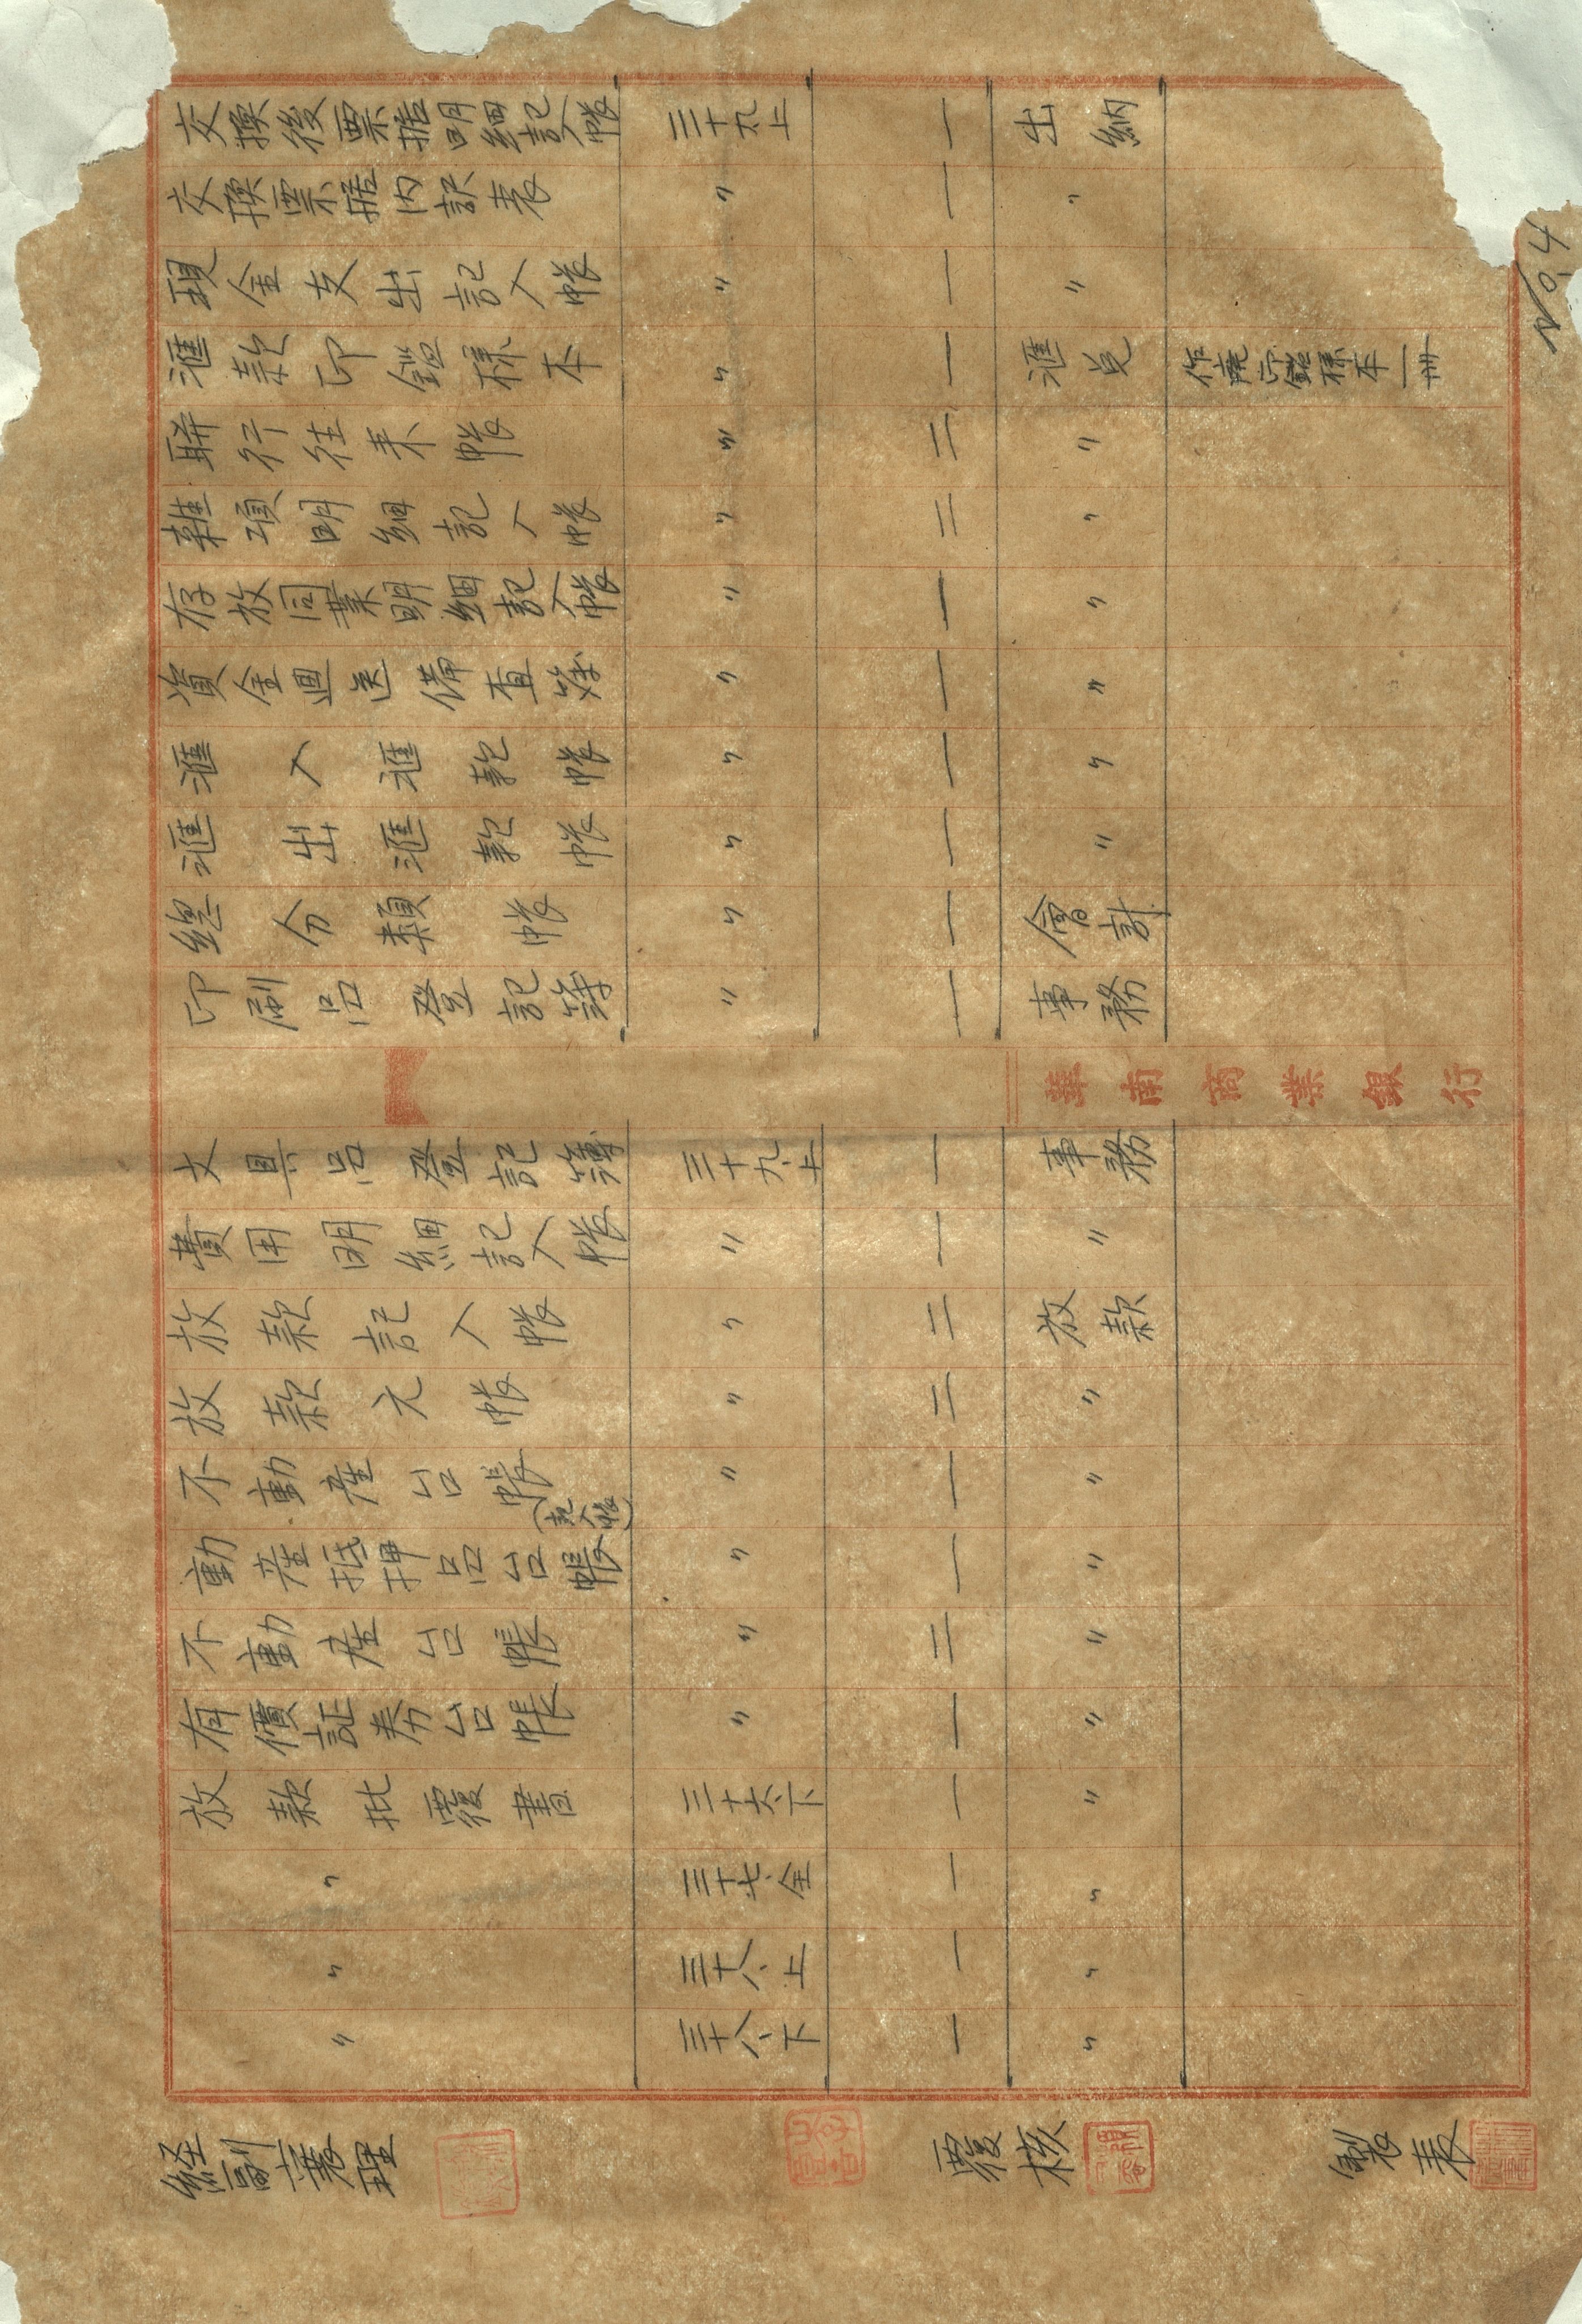 No 4
交換後票據明細記入帳 三十九上 一 出納
交換票據内訳表 〃 一 〃
現金支出記入帳 〃 一 〃
滙款印鑑樣本 〃 一 滙兌 作廢印鑑樣本一冊
聯行往来帳 〃 二 〃
雜項明細記入帳 〃 二 〃
存放同業明細記入帳 〃 一 〃
資金回送備查簿 〃 一 〃
滙入滙款帳 〃 一 〃
滙出滙款帳 〃 一 〃
總分類帳 〃 一 會計
印刷品登記簿 〃 一 事務
華南商業銀行
文具品登記簿 三十九、上 一 事務
費用明細記入帳 〃 一 〃
放款記入帳 〃 二 放款
放款元帳 〃 二 〃
不動產台帳(記入帳) 〃 一 〃
動產抵押品台帳 〃 一 〃
不動產台帳 〃 二 〃
有價証券台帳 〃 一 〃
放款批覆書 三十六、下 一 〃
〃 三十七、全 一 〃
〃 三十八、上 一 〃
〃 三十八、下 一 〃
経副襄理 覆核 製表